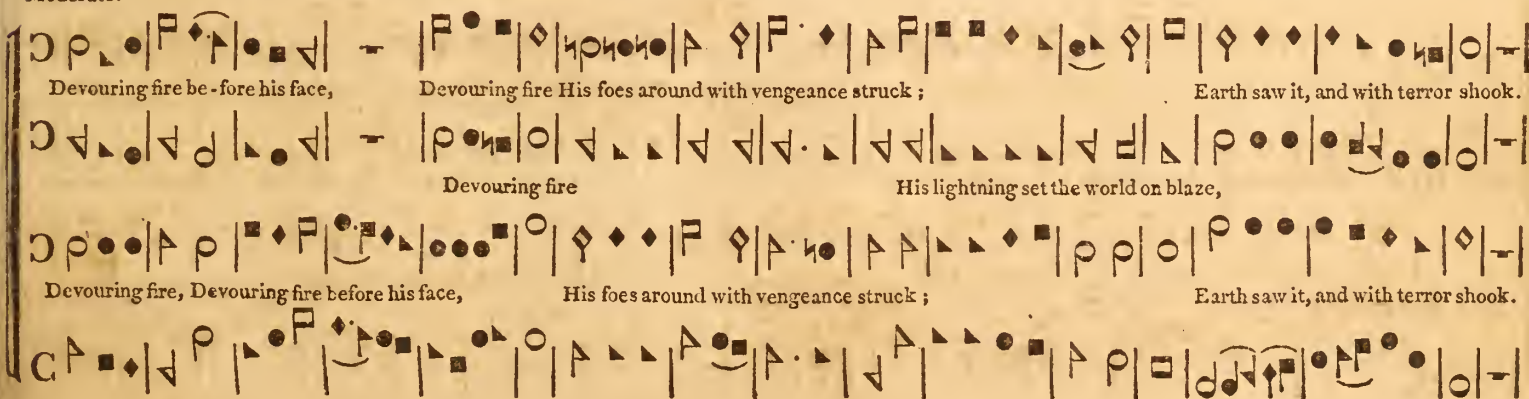 Devouring fire be-fore his face, Devouring fire His foes around with vengeance struck ; Earth saw it, and with terror shook.
Devouring fire His lightning set the world on blaze,
Devouring fire, Devouring fire before his face, His foes around with vengeance struck ; Earth saw it, and with terror shook.